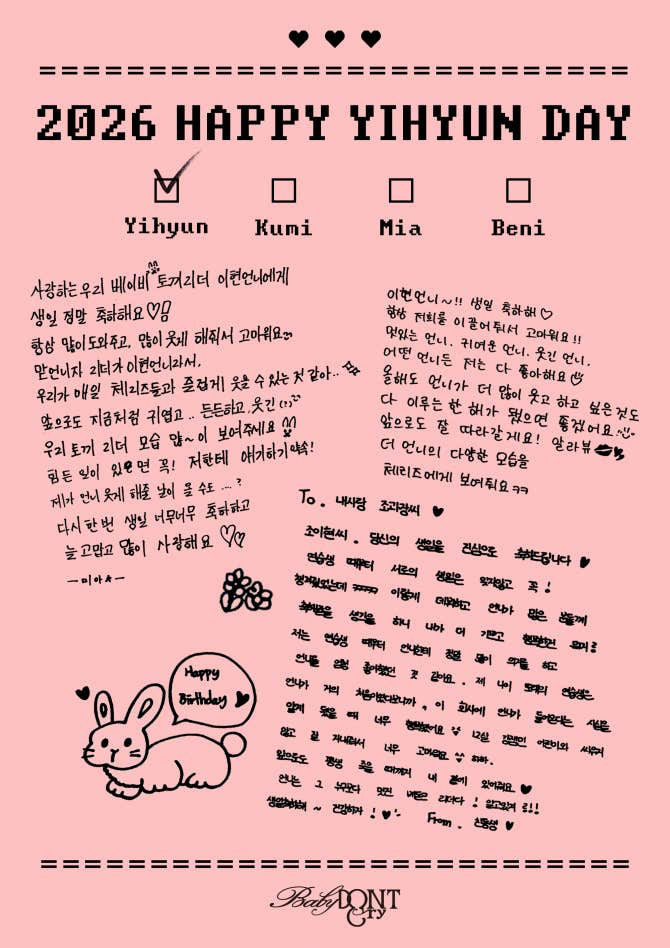 2026 HAPPY YIHYUN DAY
Yihyun Kumi Mia Beni
사랑하는 우리 베이비 토끼 리더 이현언니에게
생일 정말 축하해요♡
항상 많이 도와주고, 많이 웃게 해줘서 고마워요
맏언니자 리더가 이현언니라서,
우리가 매일 체리즈들과 즐겁게 웃을 수 있는 것 같아..
앞으로도 지금처럼 귀엽고.. 든든하고, 웃긴
우리 토끼 리더 모습 많~이 보여주세요
힘든 일이 있으면 꼭! 저한테 얘기하기 약속!
제가 언니 웃게 해줄 날이 올 수도 ....?
다시 한번 생일 너무너무 축하하고
늘 고맙고 많이 사랑해요 ♡♡
-미아★-
이현언니~!! 생일 축하해♡
항상 저희를 이끌어줘서 고마워요!!
멋있는 언니. 귀여운 언니. 웃긴 언니.
어떤 언니든 저는 다 좋아해요
올해도 언니가 더 많이 웃고 하고 싶은 것도
다 이루는 한 해가 됐으면 좋겠어요
앞으로도 잘 따라갈게요! 알라뷰
더 언니의 다양한 모습을
체리즈에게 보여줘요 ㅋㅋ
To. 내사랑 조과장씨 ♥
조이현씨. 당신의 생일을 진심으로 축하드립니다 ♥
연습생 때부터 서로의 생일은 잊지않고 꼭!
챙겨줬었는데 이렇게 데뷔하고 언니가 많은 분들께
축하를 생각을 하니 내가 더 기쁘고 행복한건 뭐지?
저는 연습생 때부터 언니한테 정말 많이 의지를 하고
언니를 엄청 좋아했던 것 같아요. 제 나이 또래의 연습생은
언니가 거의 처음이었다보니까, 이 회사에 언니가 들어온다는 사실을
알게 됐을 때 너무 행복했어요 12살 강생민 어린이와 싸우지
않고 잘 지내줘서 너무 고마워요 하하.
앞으로도 평생 죽을 때까지 내 곁에 있어줘요 ♥
언니는 그 누구보다 멋진 베돈크 리더다! 알고있지?!!
생일축하해~ 건강하자!♥
From. 친동생 ♥
Happy
Birthday ♥
Baby DONT
Cry